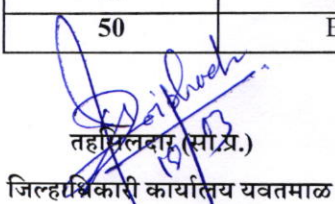 50
तहसिलदार (सा.प्र.)
जिल्हाधिकारी कार्यालय यवतमाळ